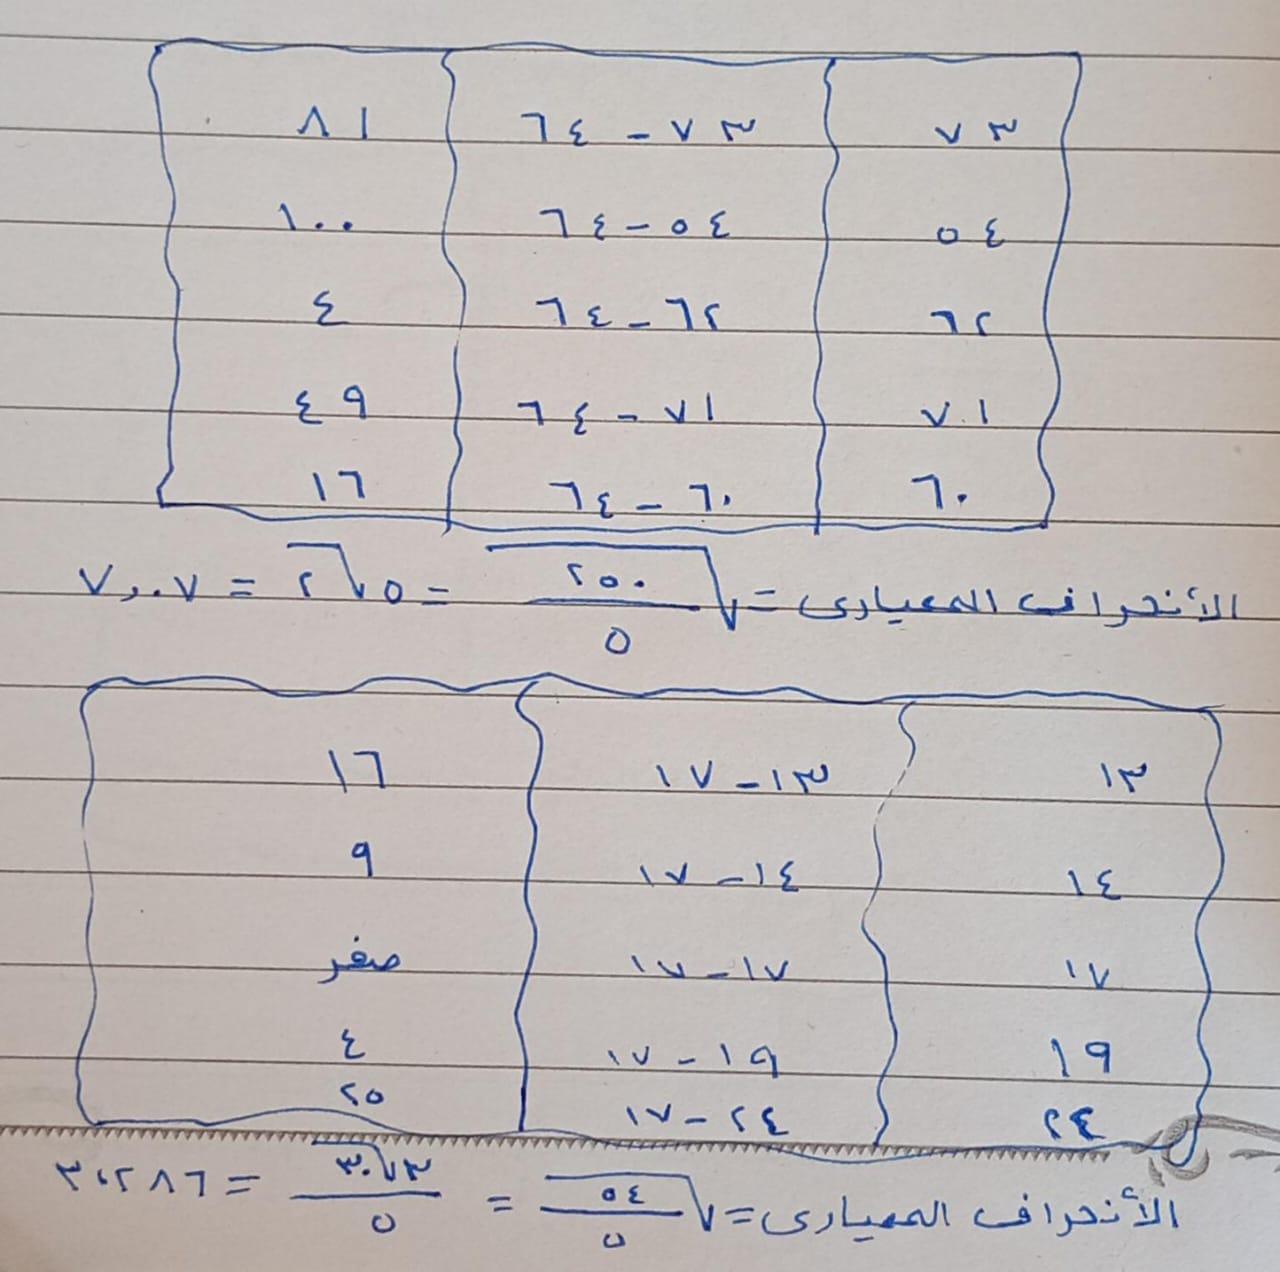 ٧٣ ٧٣ - ٦٤ ٨١
٥٤ ٥٤ - ٦٤ ١٠٠
٦٢ ٦٢ - ٦٤ ٤
٧١ ٧١ - ٦٤ ٤٩
٦٠ ٦٠ - ٦٤ ١٦
الأنحراف المعيارى = √(٢٥٠/٥) = ٥√٢ = ٧,٠٧
١٣ ١٣ - ١٧ ١٦
١٤ ١٤ - ١٧ ٩
١٧ ١٧ - ١٧ صفر
١٩ ١٩ - ١٧ ٤
٢٤ ٢٤ - ١٧ ٢٥
الأنحراف المعيارى = √(٥٤/٥) = ٣√٣٠/٥ = ٣,٢٨٦